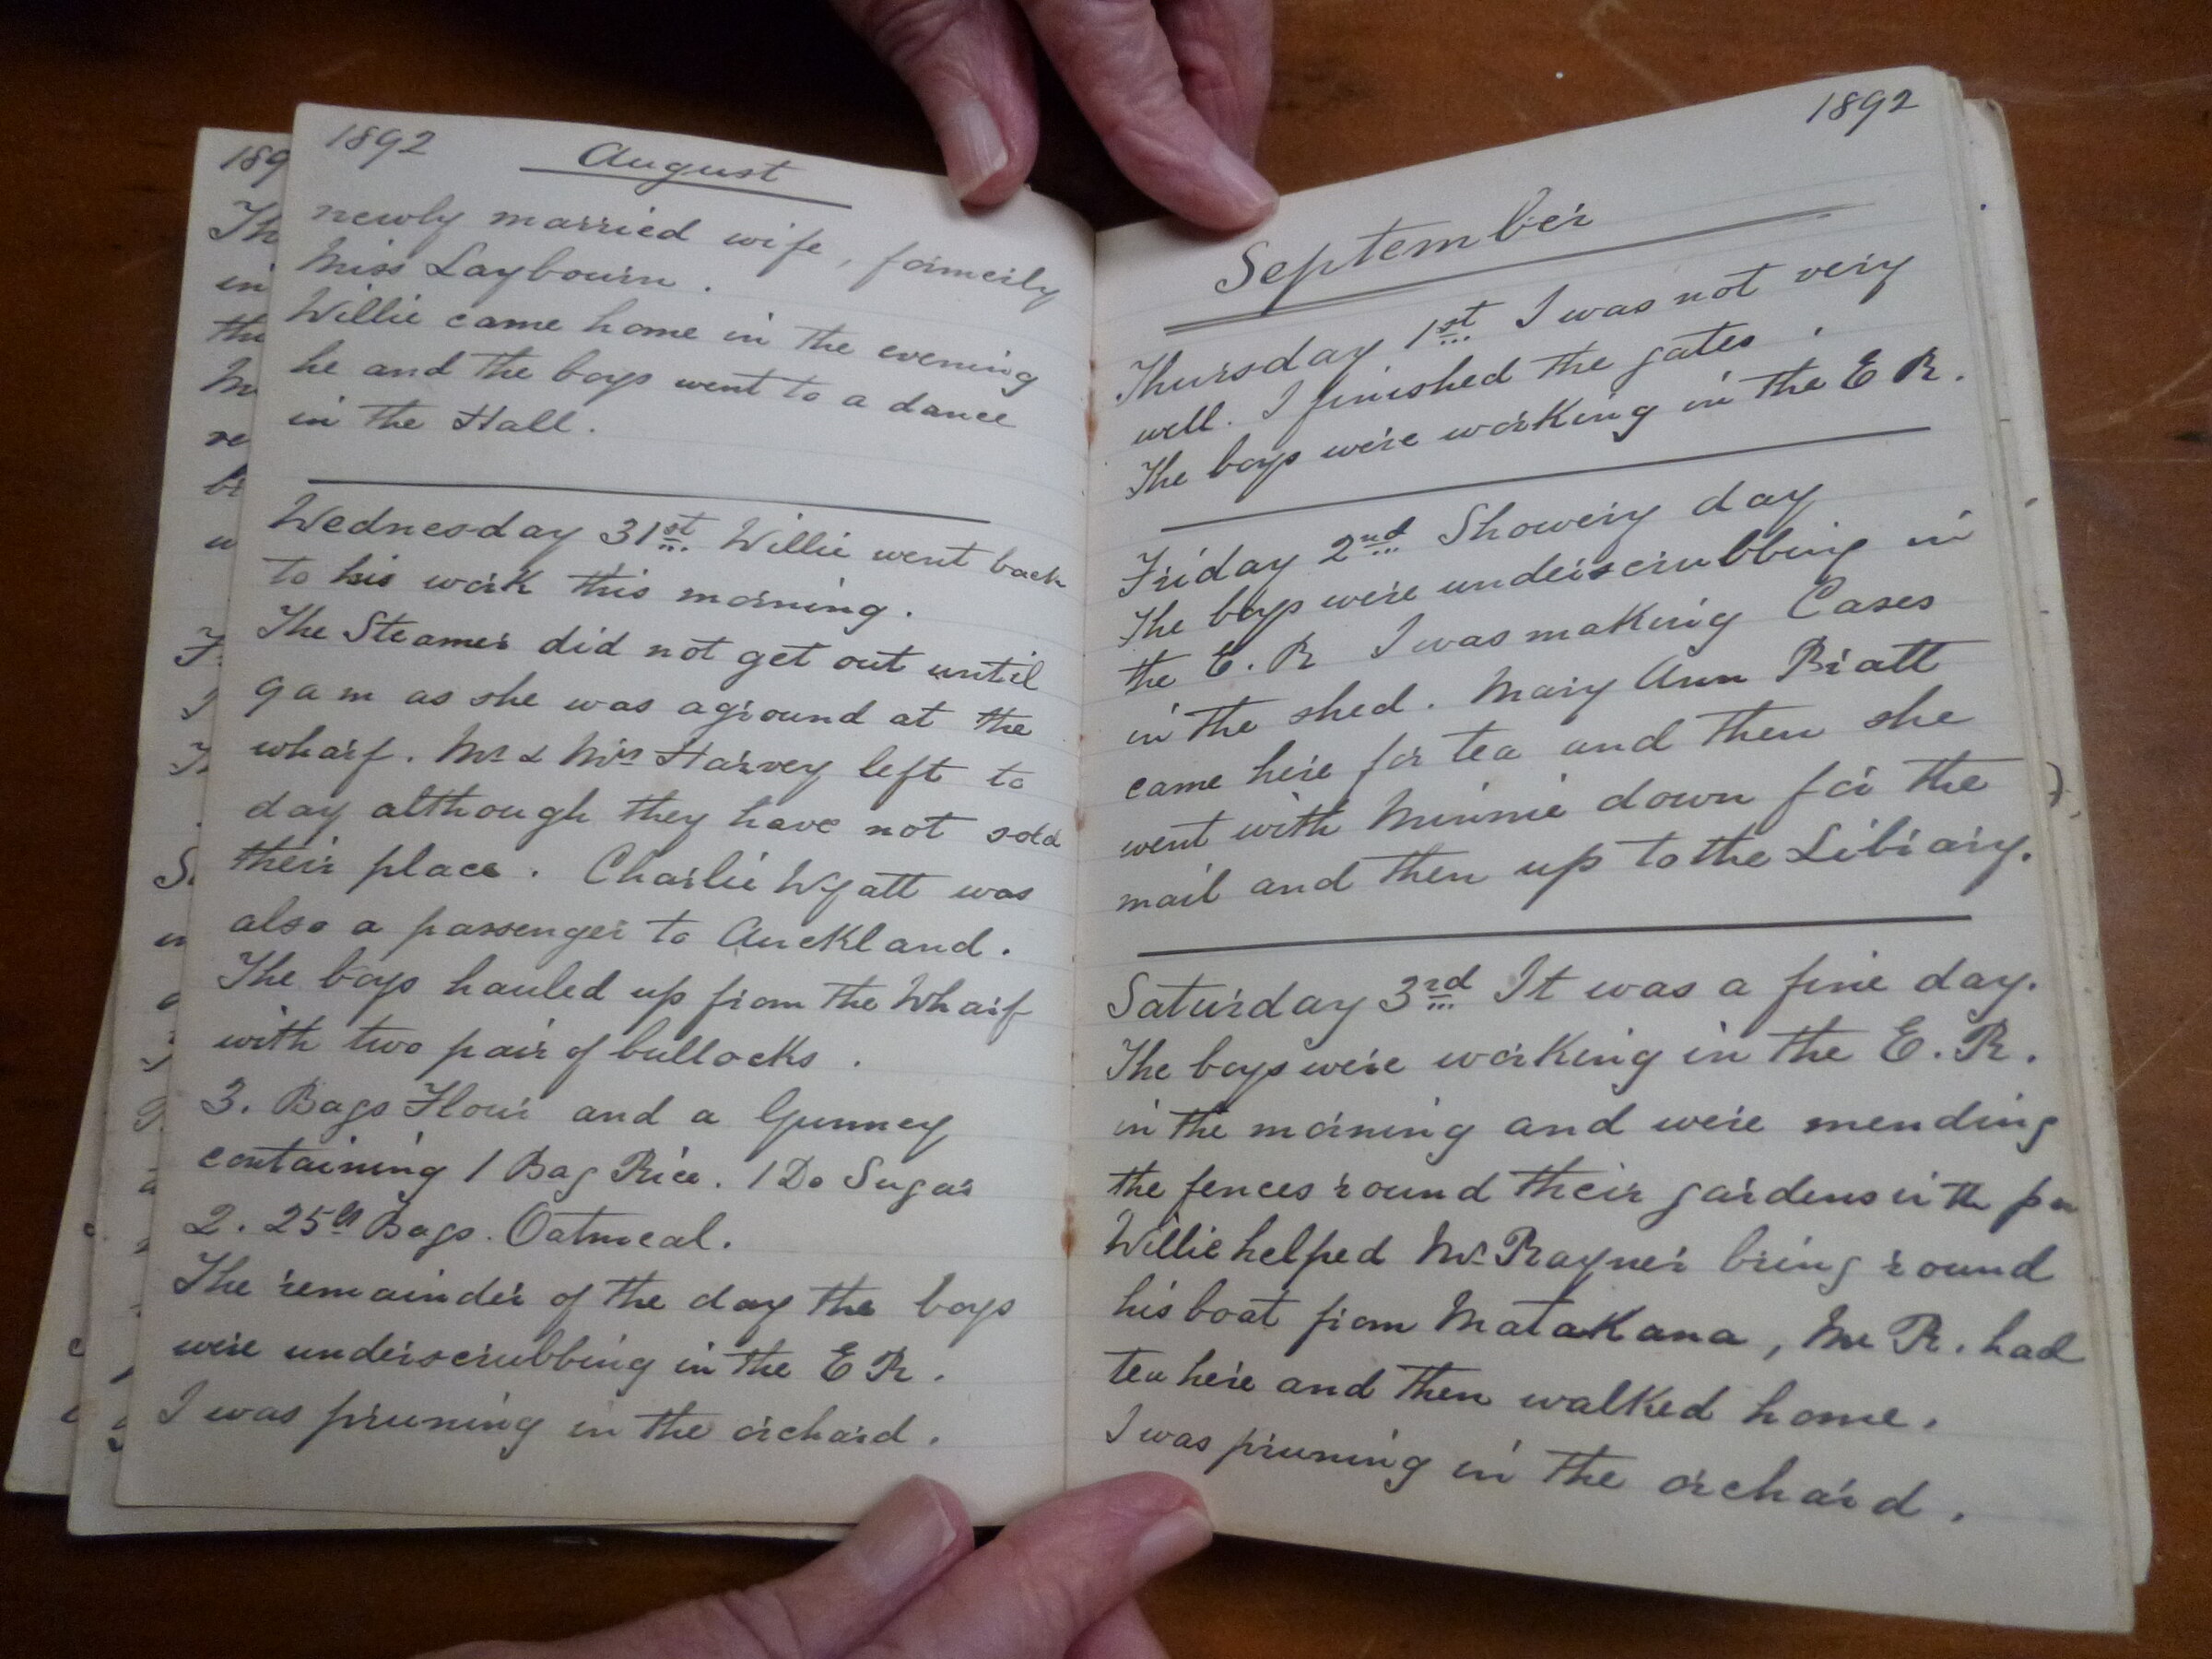 1892 August
newly married wife, formerly
Miss Laybourn.
Willie came home in the evening
he and the boys went to a dance
in the Hall.
Wednesday 31st Willie went back
to his work this morning.
The Steamer did not get out until
9 a m as she was aground at the
wharf. Mr & Mrs Harvey left to
day although they have not sold
their place. Charlie Wyatt was
also a passenger to Auckland.
The boys hauled up from the Wharf
with two pair of bullocks.
3. Bags Flour and a Gunney
containing 1 Bag Rice. 1 Do Sugar
2. 25lb Bags. Oatmeal.
The remainder of the day the boys
were underscrubbing in the E R.
I was pruning in the orchard.
1892
September
Thursday 1st I was not very
well. I finished the gates.
The boys were working in the E R.
Friday 2nd Showery day
The boys were underscrubbing in
the E. R I was making Cases
in the shed. Mary Ann Bratt
came here for tea and then she
went with Minnie down for the
mail and then up to the Library.
Saturday 3rd It was a fine day.
The boys were working in the E. R.
in the morning and were mending
the fences round their gardens in the
Willie helped Mr Rayner bring round
his boat from Matakana, Mr R. had
tea here and then walked home.
I was pruning in the orchard.